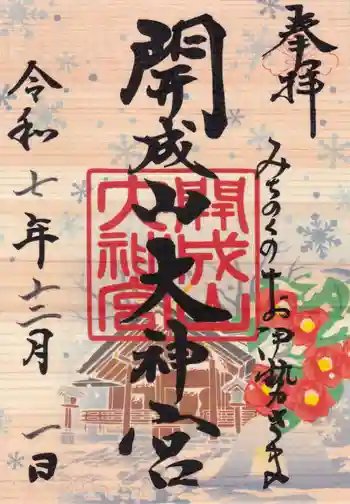 奉拝
みちのくのおいせさま
開成山大神宮
開成山
大神宮
令和七年十二月一日